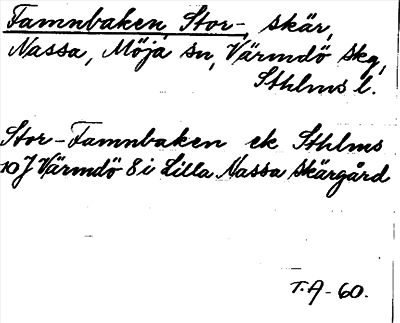 Famnbaken, Stor-, skär,
Nassa, Möja sn, Värmdö skg,
Sthlms l.
Stor-Famnbaken ek Sthlms
10J Värmdö 8 i Lilla Nassa skärgård
T.A-60.